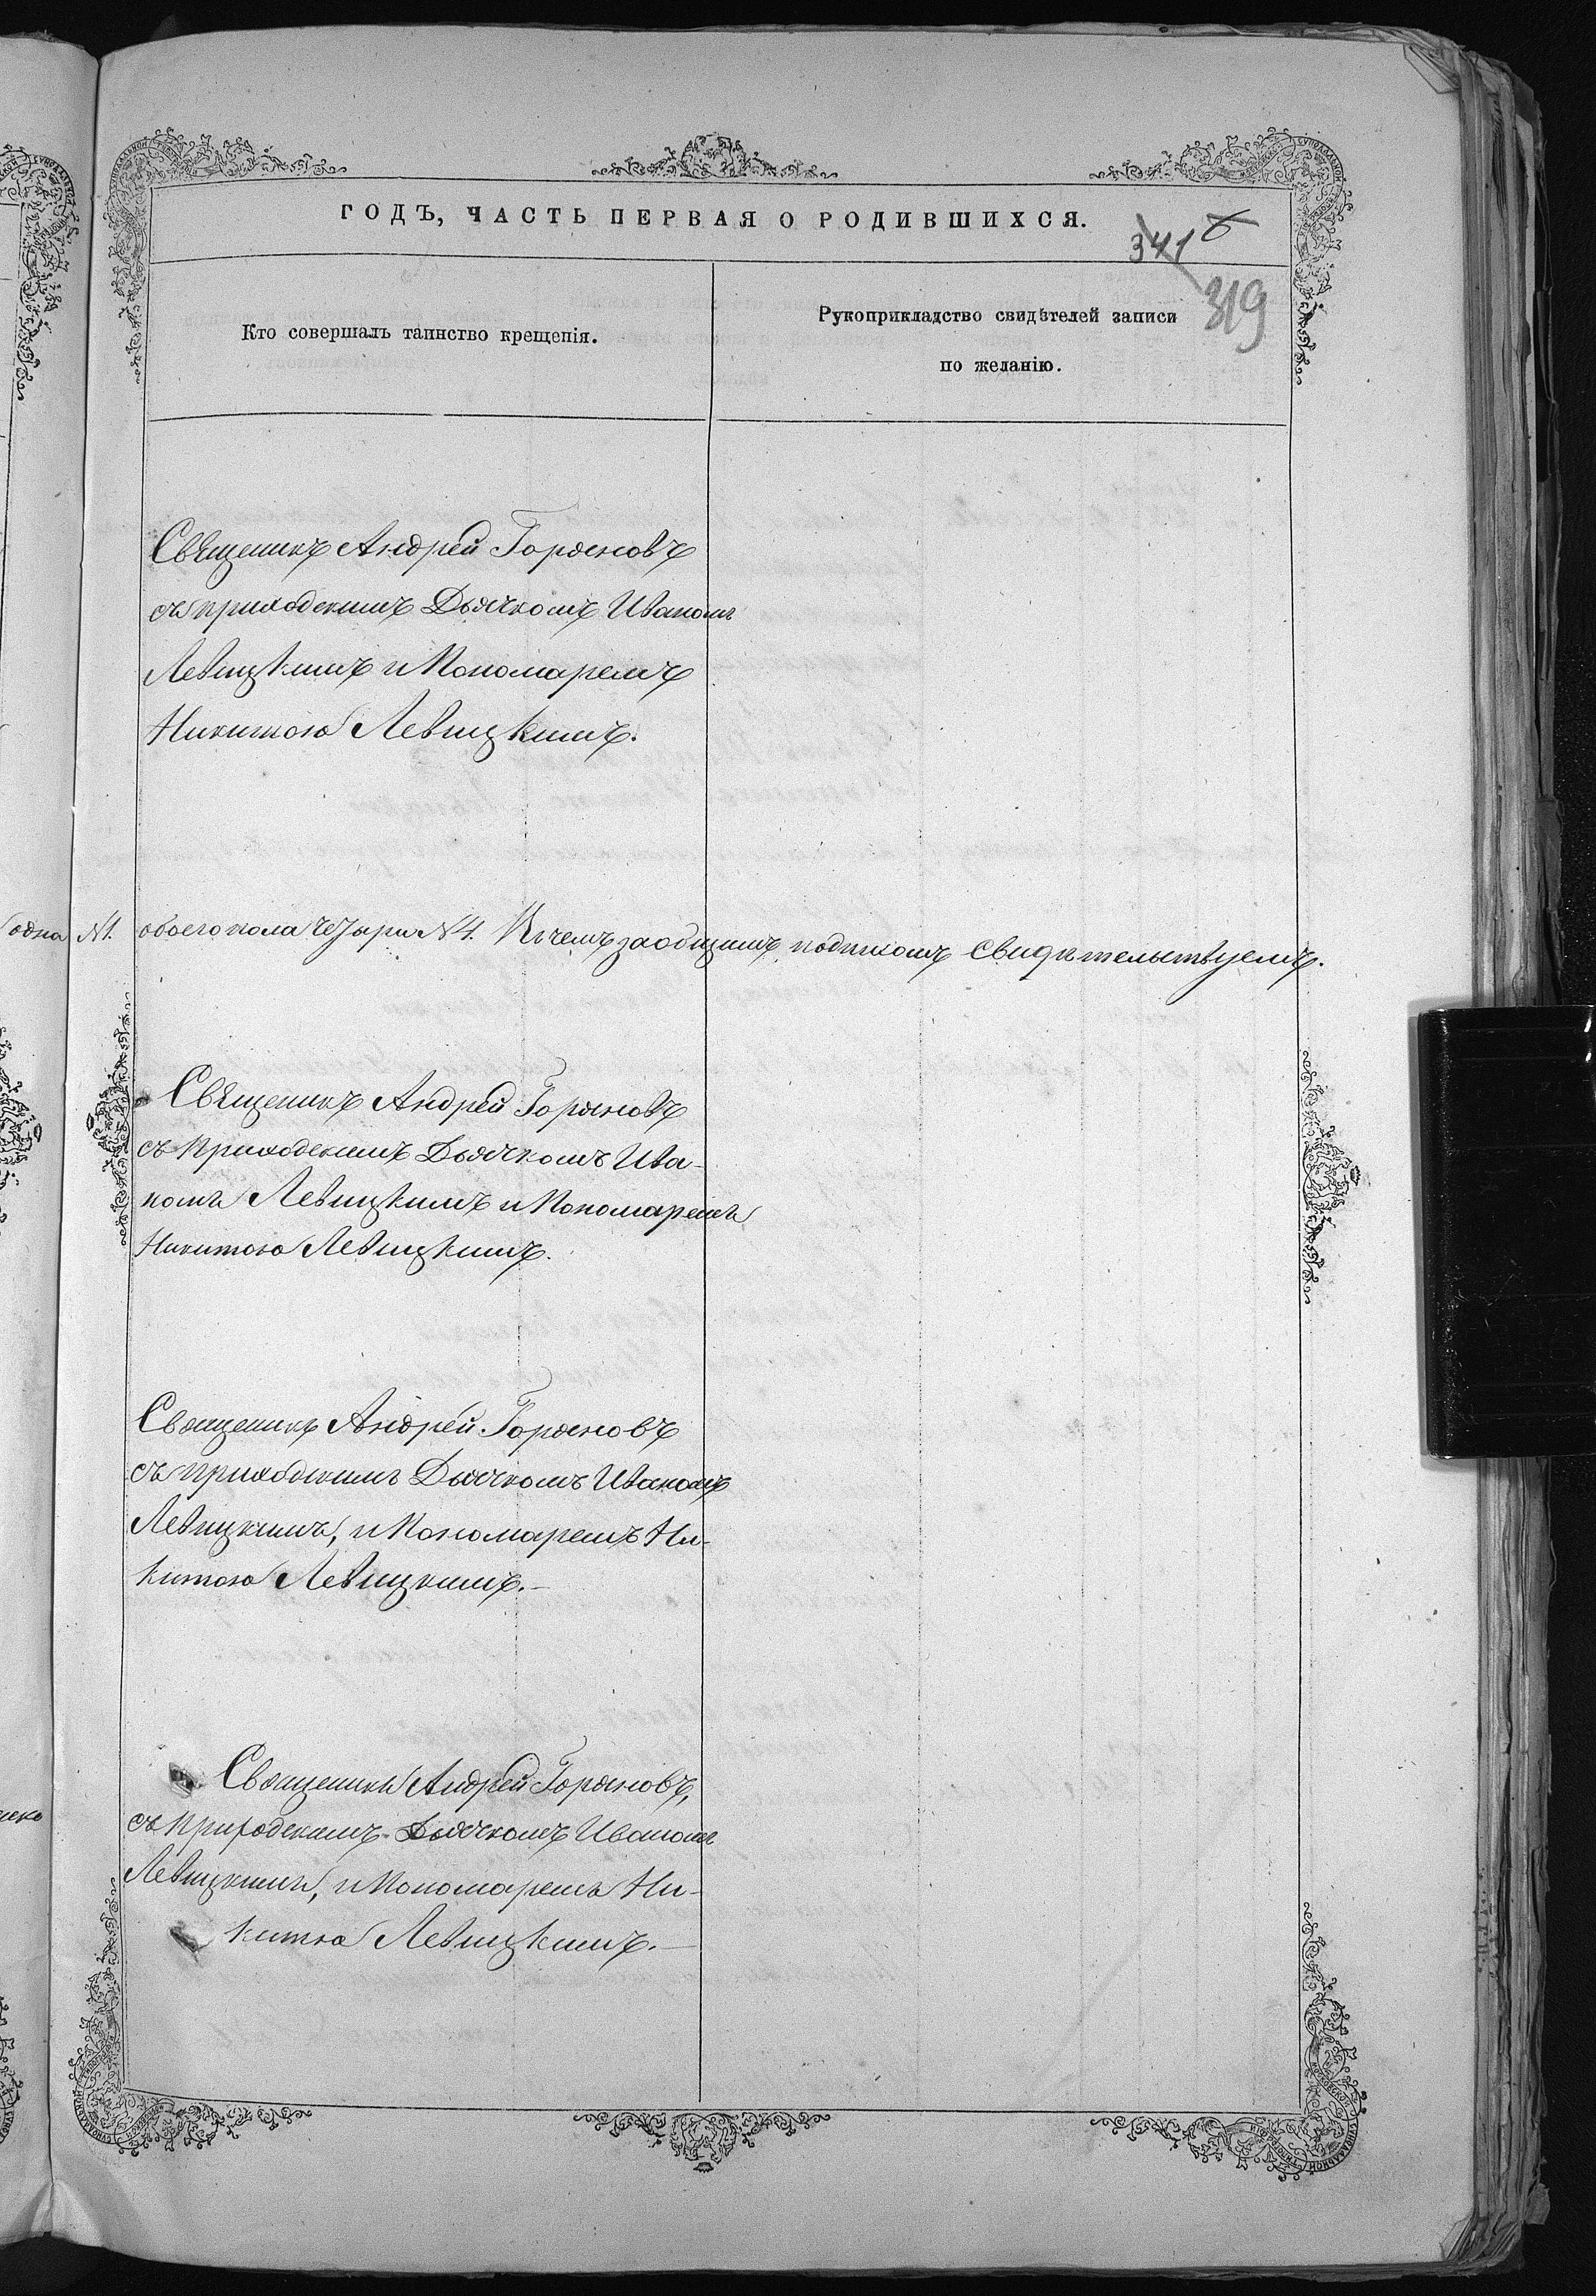 ГОДЪ, ЧАСТЬ ПЕРВАЯ О РОДИВШИХСЯ.
341
319
Кто совершалъ таинство крещенія.
Рукоприкладство свидѣтелей записи
по желанію.
Священникъ Андрей Горяновъ
съ приходскимъ Дьячкомъ Иваномъ
Левицкимъ и Пономаремъ
Никитою Левицкимъ.
одна №1. обоего пола четыри №4. Въ чемъ за общимъ подписомъ свидѣтельствуемъ.
Священикъ Андрей Горяновъ
съ приходскимъ Дьячкомъ Ива-
номъ Левицкимъ и Пономаремъ
Никитою Левицкимъ.
Священикъ Андрей Горяновъ
съ приходскимъ Дьячкомъ Иваномъ
Левицкимъ, и Пономаремъ Ни-
китою Левицкимъ.—
Священикъ Андрей Горяновъ,
съ Приходскимъ Дьячкомъ Иваномъ
Левицкимъ, и Пономаремъ Ни-
китою Левицкимъ.—